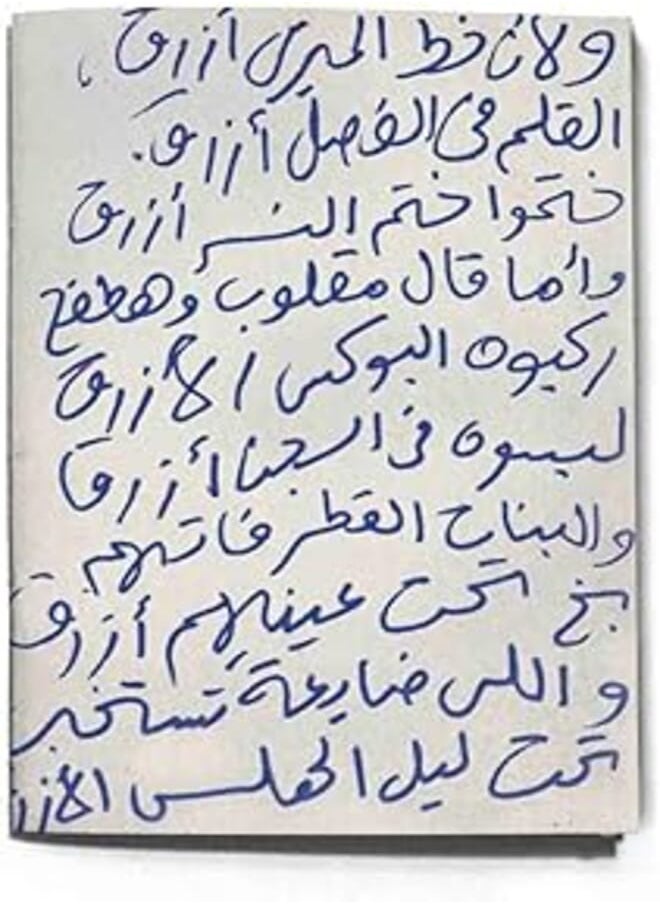 ولأن خط الميري أزرق
القلم في الفصل أزرق.
ختموا ختم النسر أزرق
وأما قال مقلوب وهطفح
ركبوه البوكس الأزرق
لبسوه في السجن أزرق
والبنات القطر فاتهم
بخ تحت عينيهم أزرق
واللى ضايعة تستخبى
تحت ليل الهلس الأزر